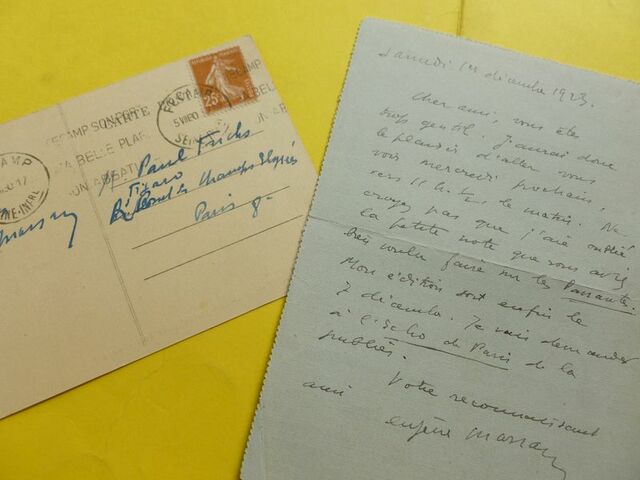 CARTE POSTALE
FECAMP SON POR
SA BELLE PLAG
FECAMP
25c
5 VIII 30
SEINE
CAMP
INE-INFRE
M Paul Fuchs
Figaro
Rd Point des Champs Elysées
Paris 8e
Marsan
Samedi 1er décembre 1923.
Cher ami, vous êtes
trop gentil. J'aurai donc
le plaisir d'aller vous
voir mercredi prochain,
vers 11 h. ½, le matin. Ne
croyez pas que j'aie oublié
la petite note que vous avez
bien voulu faire sur les Passantes.
Mon édition sort enfin le
7 décembre. Je vais demander
à l'Echo de Paris de la
publier.
Votre reconnaissant
ami
Eugène Marsan